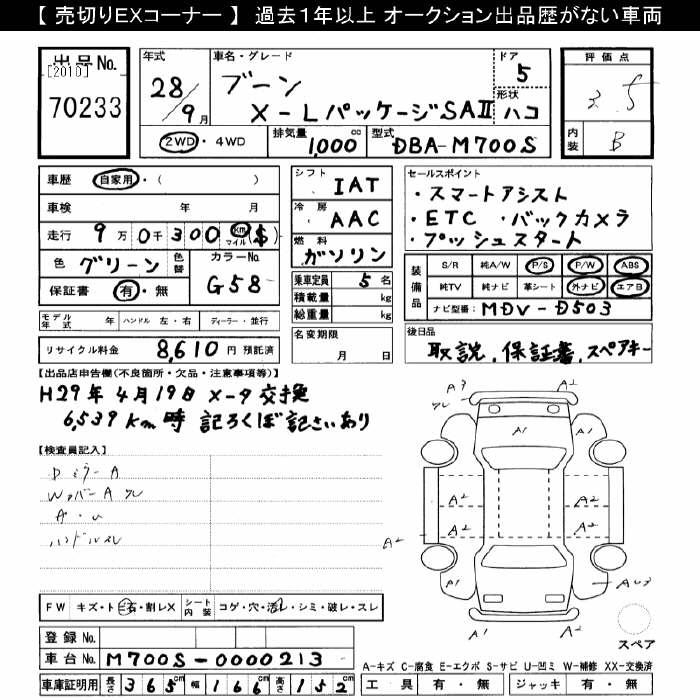 【 売切りEXコーナー 】 過去1年以上 オークション出品歴がない車両
出品No.
[2010]
70233
年式
28/9月
車名・グレード
ブーン
X-LパッケージSAⅡ
ドア
5
形状
ハコ
評価点
3.5
内装
B
2WD・4WD
排気量
1,000cc
型式
DBA-M700S
車歴 自家用・( )
車検 年 月
走行 9万0千300 km マイル ($)
色 グリーン 色替
カラーNo.
G58
保証書 有・無
モデル年式 年 ハンドル 左・右 ディーラー・並行
リサイクル料金 8,610円 預託済
シフト
IAT
冷房
AAC
燃料
ガソリン
乗車定員 5名
積載量 kg
総重量 kg
名変期限
月 日
セールスポイント
・スマートアシスト
・ETC ・バックカメラ
・プッシュスタート
装備品
S/R 純A/W P/S P/W ABS
純TV 純ナビ 革シート 外ナビ エアB
ナビ型番: MDV-D503
後日品
取説、保証書、スペアキー
【出品店申告欄(不良箇所・欠品・注意事項等)】
H29年4月19日 メータ交換
6,539km時 記ろくぼ記さいあり
【検査員記入】
Dミラー A
Wカバー A スレ
ハンドルスレ
A3
スレ
A2
A1
A1
A2
A2
A2
A2
A2
A1
A1
AU3
A2
スペア
FW キズ・トビ石・割レX
シート内装 コゲ・穴・汚レ・シミ・破レ・スレ
登録No.
車台No. M700S-0000213
車庫証明用 長さ 365cm 幅 166cm 高さ 152cm
A-キズ C-腐食 E-エクボ S-サビ U-凹ミ W-補修 XX-交換済
工具 有・無 ジャッキ 有・無